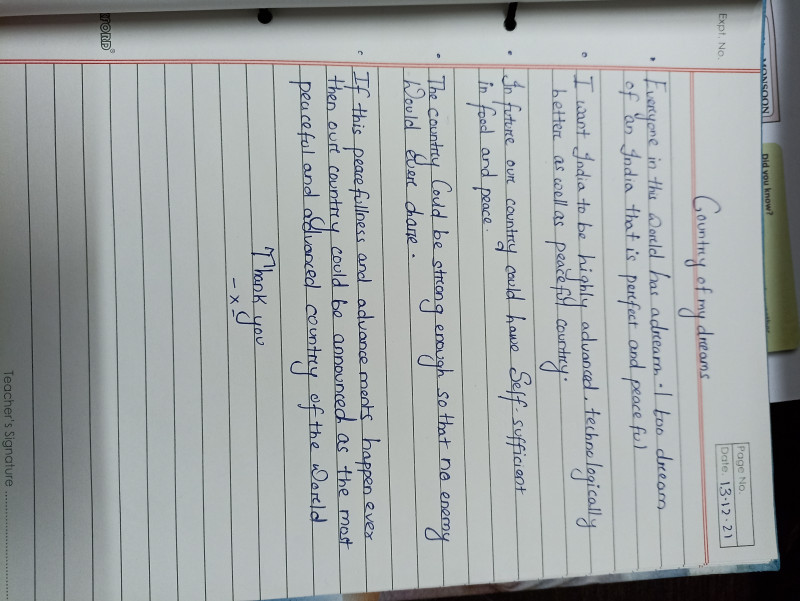 MONSOON
Did you know?
Expt. No.
Page No.
Date. 13·12·21
Country of my dreams
• Everyone in this world has a dream. I too dream
of an India that is perfect and peaceful
• I want India to be highly advanced, technologically
better as well as peaceful country.
• In future our country could have Self-sufficient
in food and peace.
• The country Could be strong enough so that no enemy
Would ever
• If this peacefullness and advancements happen ever
then our country could be announced as the most
peaceful and advanced country of the World
Thank you
- x -
Teacher's Signature